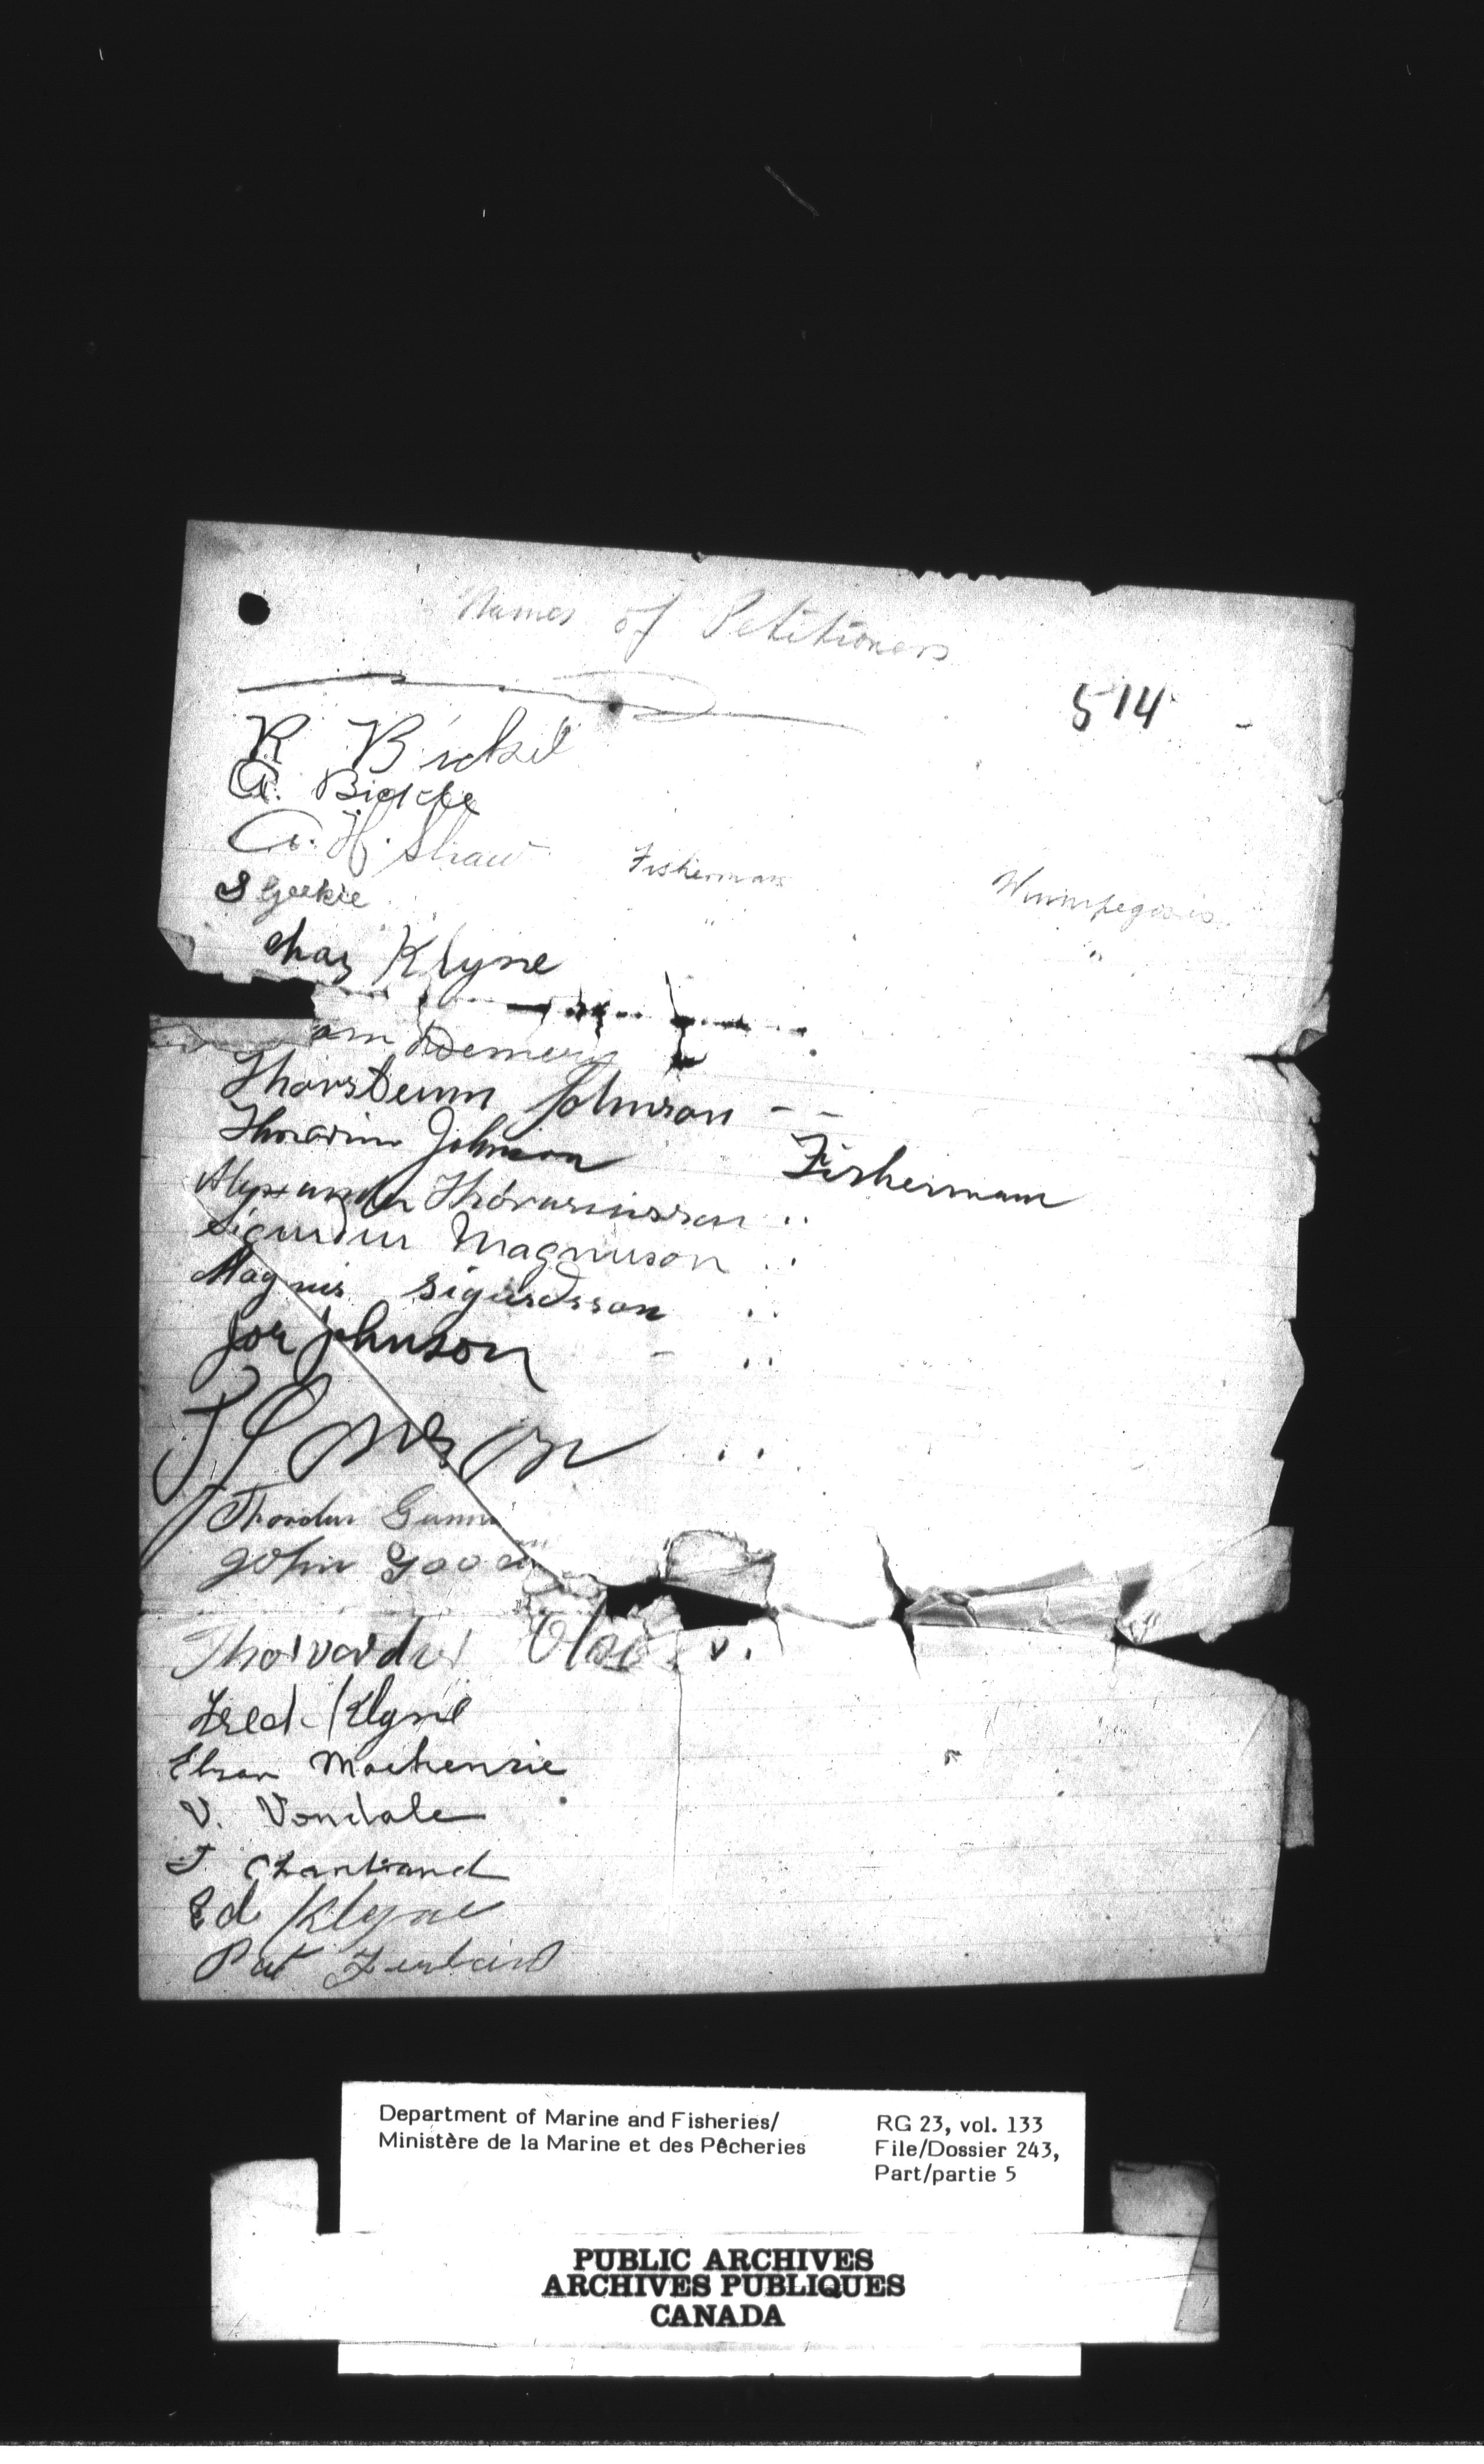 Names of Petitioners
514
R Bickel
A. Bickle
A. H. Shaw Fisherman Winnipegosis
S Geekie " "
Chas Klyne
am Demery
Thorsteinn Johnson - -
Thorarinn Johnson Fishermann
Alyxander Thórarinsson ..
Sigurdur Magnuson ..
Magnus Sigurdsson ..
Joe Johnson ..
..
Thordur Gunn
John Good
Thorvardur
Fred Klyne
Mackenzie
V. Vondale
J Chartrand
Ed Klyne
Pat
Department of Marine and Fisheries/
Ministère de la Marine et des Pêcheries
RG 23, vol. 133
File/Dossier 243,
Part/partie 5
PUBLIC ARCHIVES
ARCHIVES PUBLIQUES
CANADA